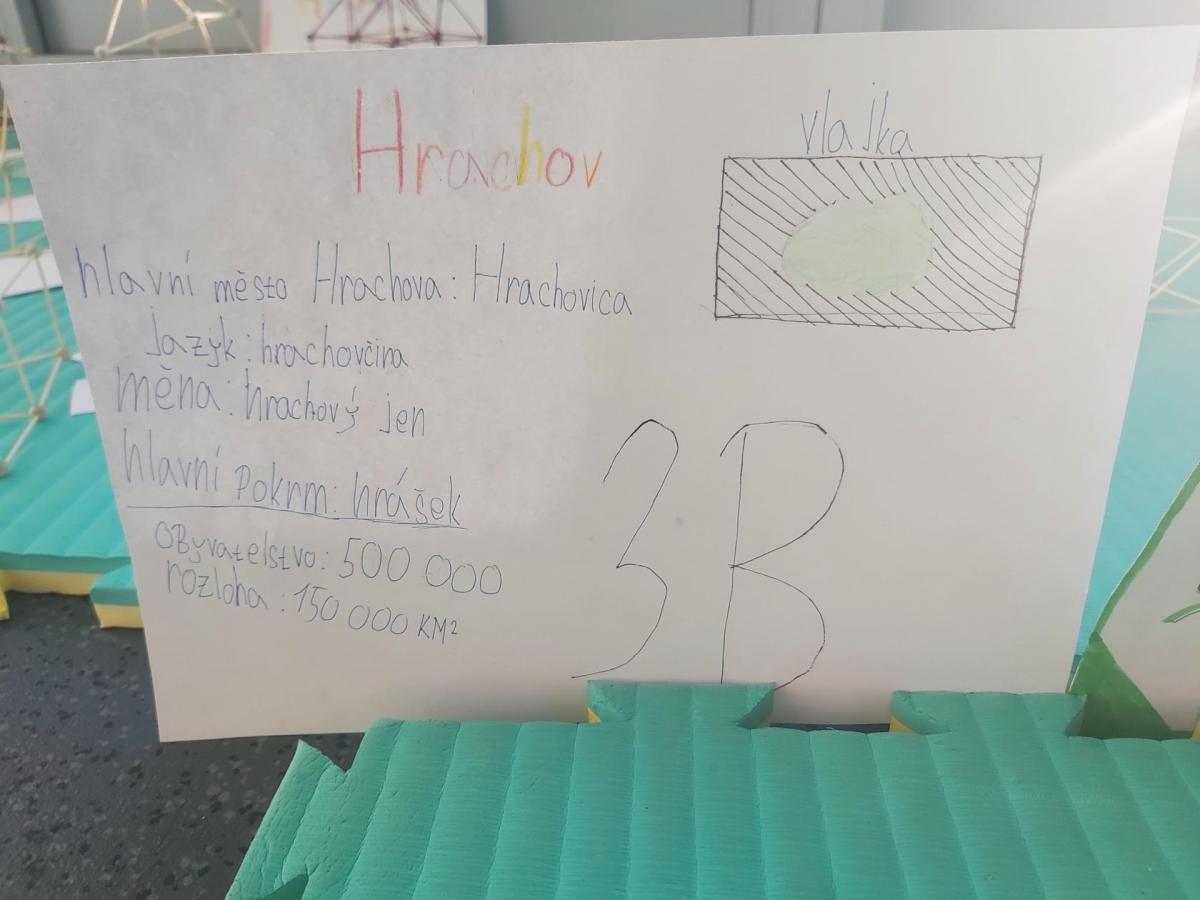 Hrachov
vlajka
hlavní město Hrachova: Hrachovica
jazyk: hrachovčina
měna: hrachový jen
hlavní pokrm: hrášek
OByvatelstvo: 500 000
rozloha: 150 000 KM²
3B